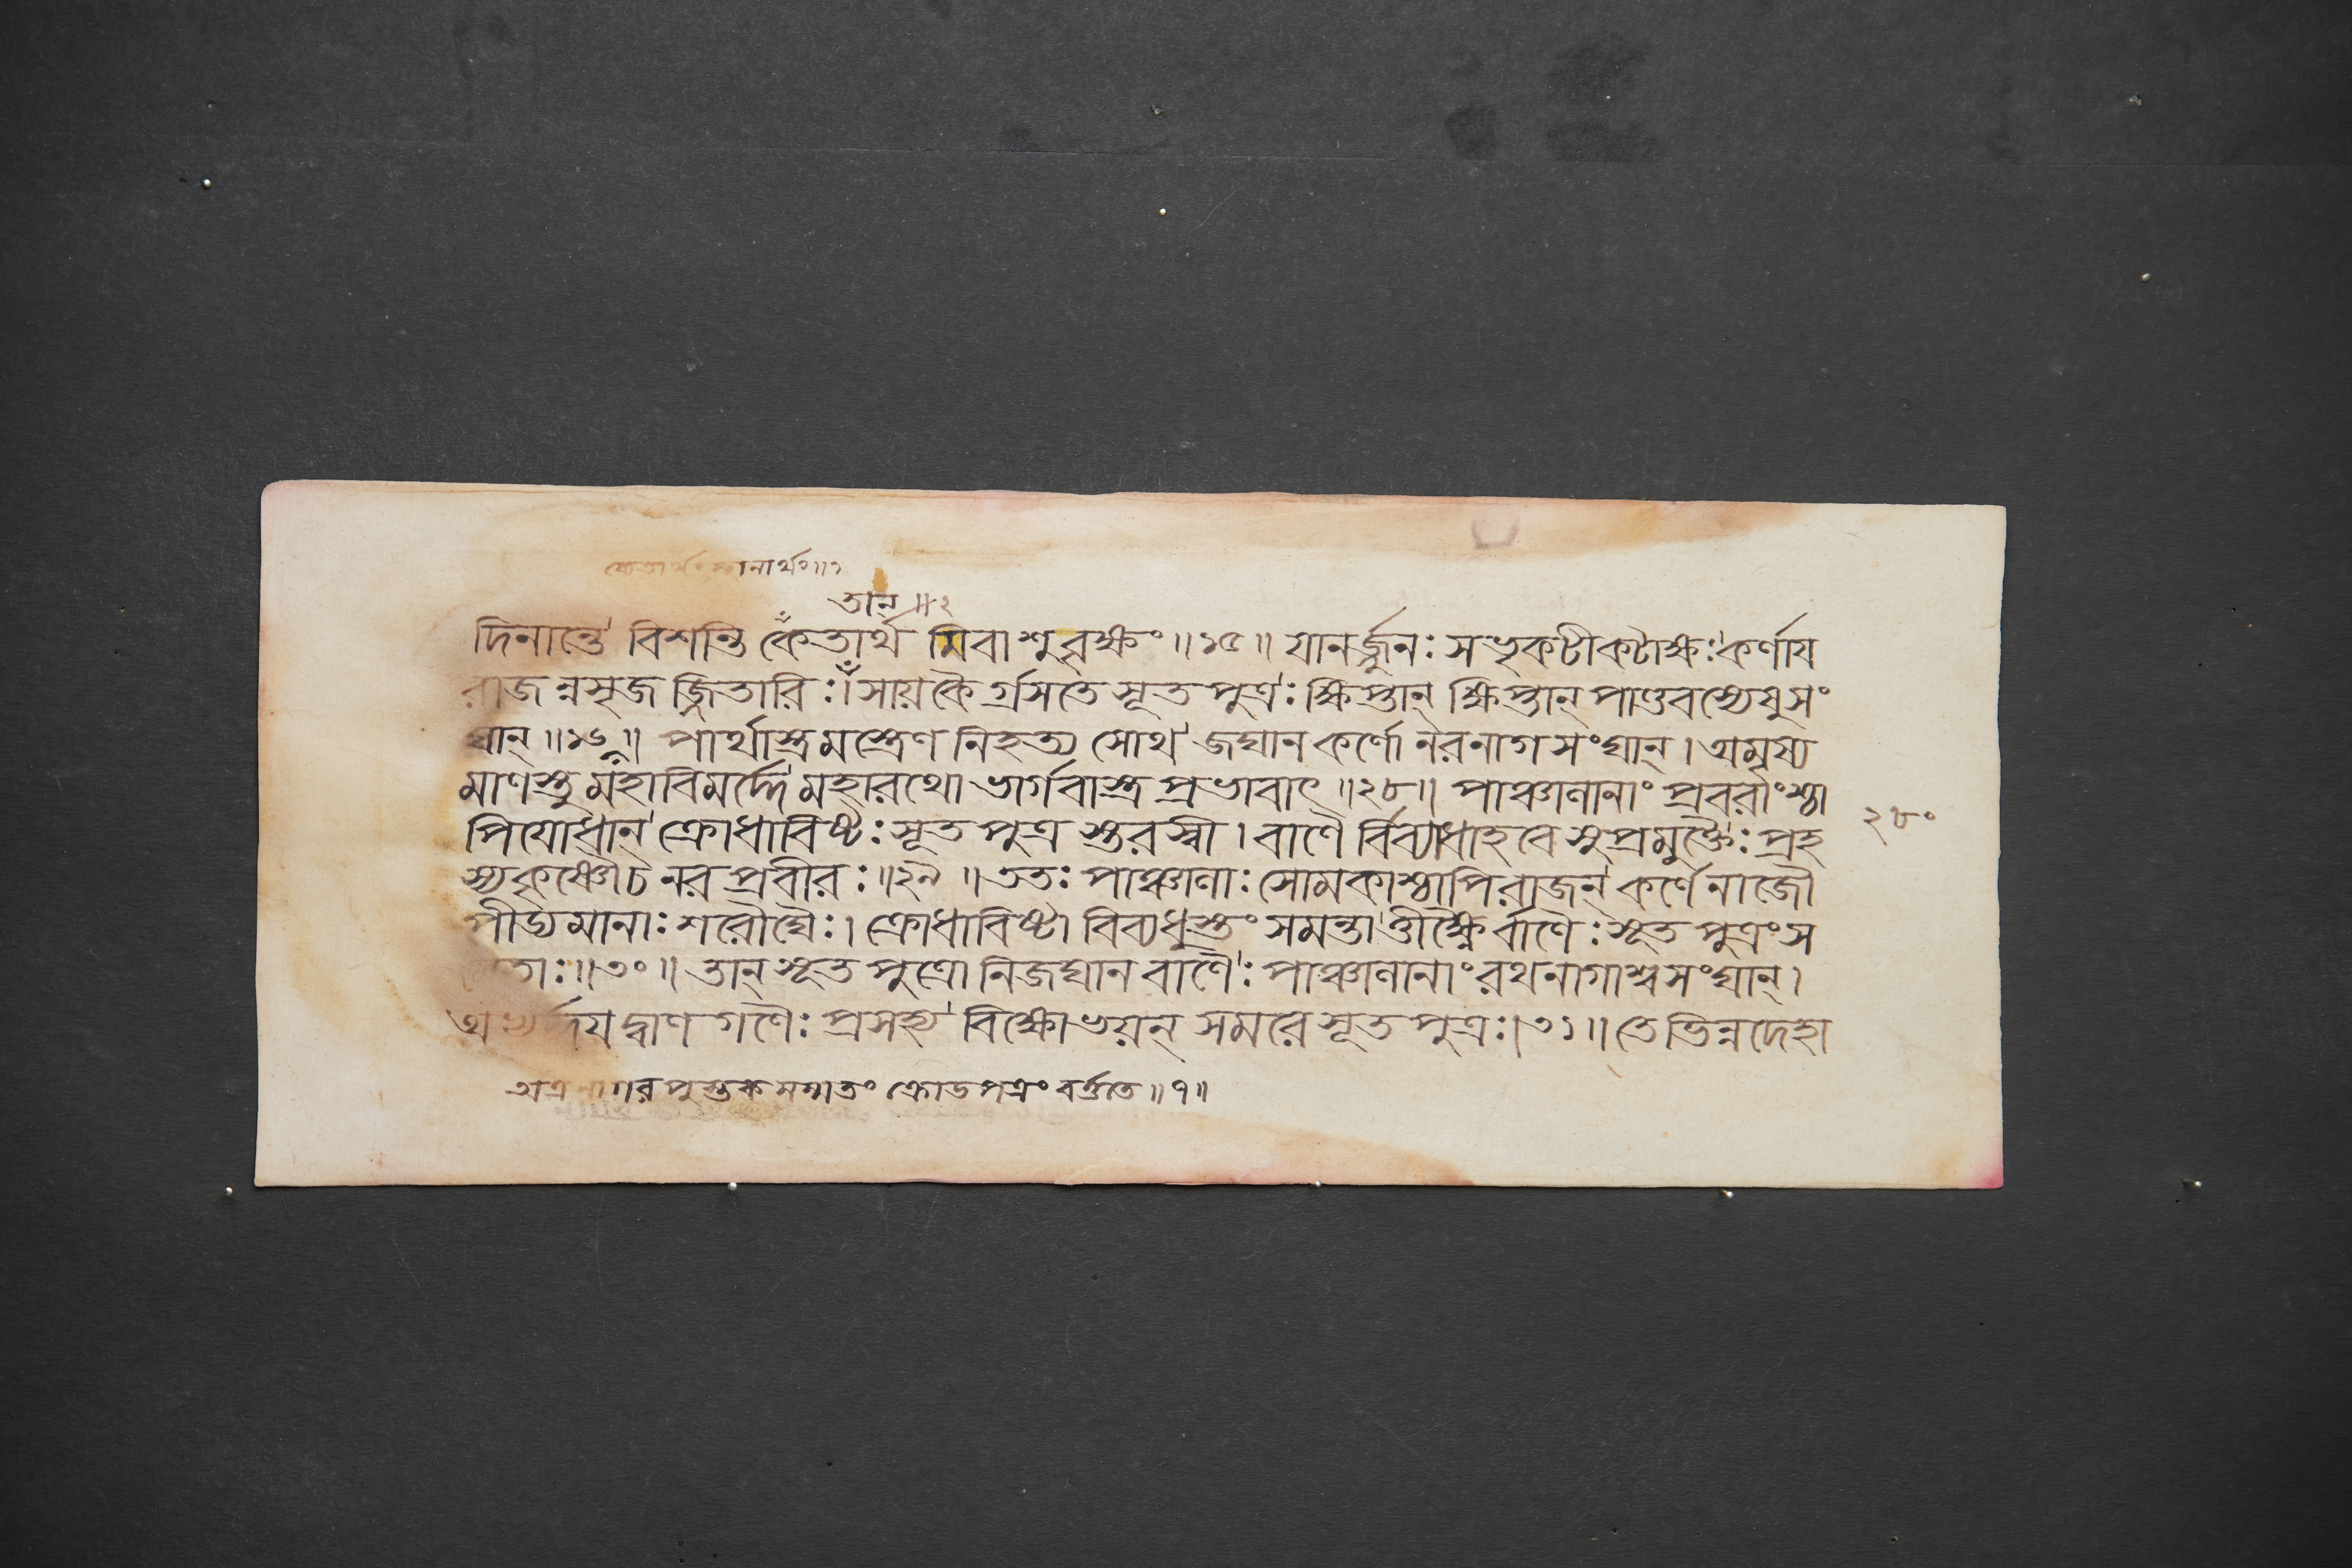 তান্ ॥২
দিনান্তে বিশন্তি কেতার্থ মিবাশু বৃক্ষং ॥২৫॥ যানর্জ্জুনঃ সভৃকটীকটাক্ষঃ কর্ণায
রাজন্নসৃজজ্জিতারিঃ। সায়কৈর্গ্রসতে সূতপুত্রঃ ক্ষিপ্তান্ ক্ষিপ্তান্ পাণ্ডবস্যেষুসং
ঘান্ ॥২৬॥ পার্থাস্ত্রমস্ত্রেণ নিহত্য সোথ জঘান কর্ণো নরনাগসংঘান্। অমৃষ্য
মাণস্তু মহাবিমর্দ্দে মহারথো ভার্গবাস্ত্রপ্রভাবাৎ ॥২৮॥ পাঞ্চালানাং প্রবরাংশ্চা
পি যোধান্ ক্রোধাবিষ্টঃ সূতপুত্রস্তরস্বী। বাণৈর্বিব্যাধাহবে সুপ্রমুক্তৈঃ প্রহ
স্য কৃষ্ণৌ চ নরপ্রবীরঃ ॥২৯॥ ততঃ পাঞ্চালাঃ সোমকাশ্চাপি রাজন্ কর্ণেনাজৌ
পীড্যমানাঃ শরৌঘৈঃ। ক্রোধাবিষ্টা বিব্যধুস্তং সমন্তাত্তীক্ষ্ণৈর্বাণৈঃ সূতপুত্রং স
তাঃ॥৩০॥ তান্ সূতপুত্রো নিজঘান বাণৈঃ পাঞ্চালানাং রথনাগাশ্বসংঘান্।
র্দ্দযদ্বাণগণৈঃ প্রসহ্য বিক্ষোভয়ন্ সমরে সূতপুত্রঃ।৩১॥ তে ভিন্নদেহা
২৮০
অত্র পুস্তকসম্মতং ক্রোডপত্রং বর্ত্ততে ॥১॥